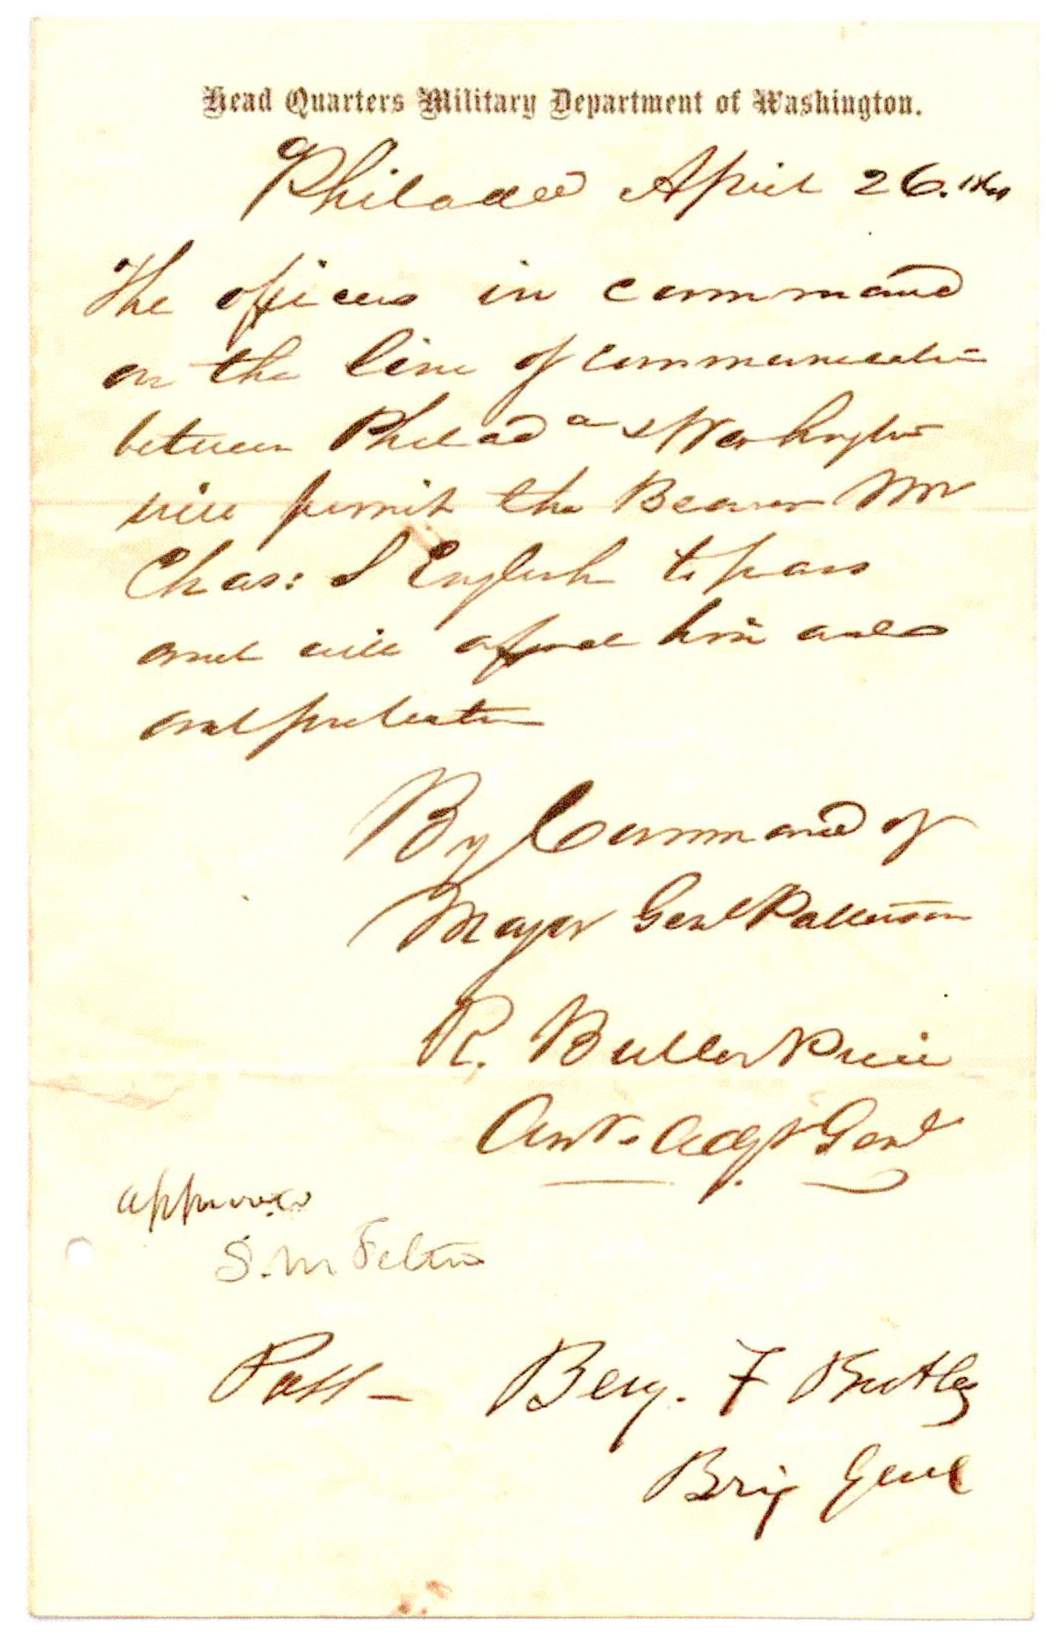 Head Quarters Military Department of Washington.
Philada April 26. 1861
The officers in command
on the line of communication
between Philada & Washington
will permit the Bearer Mr
Chas: S English to pass
and will afford him aid
and protection
By Command of
Major Genl Patterson
R. Butler Price
Asst. Adjt Genl
approved
S. M. Felton
Pass — Benj. F Butler
Brig Genl